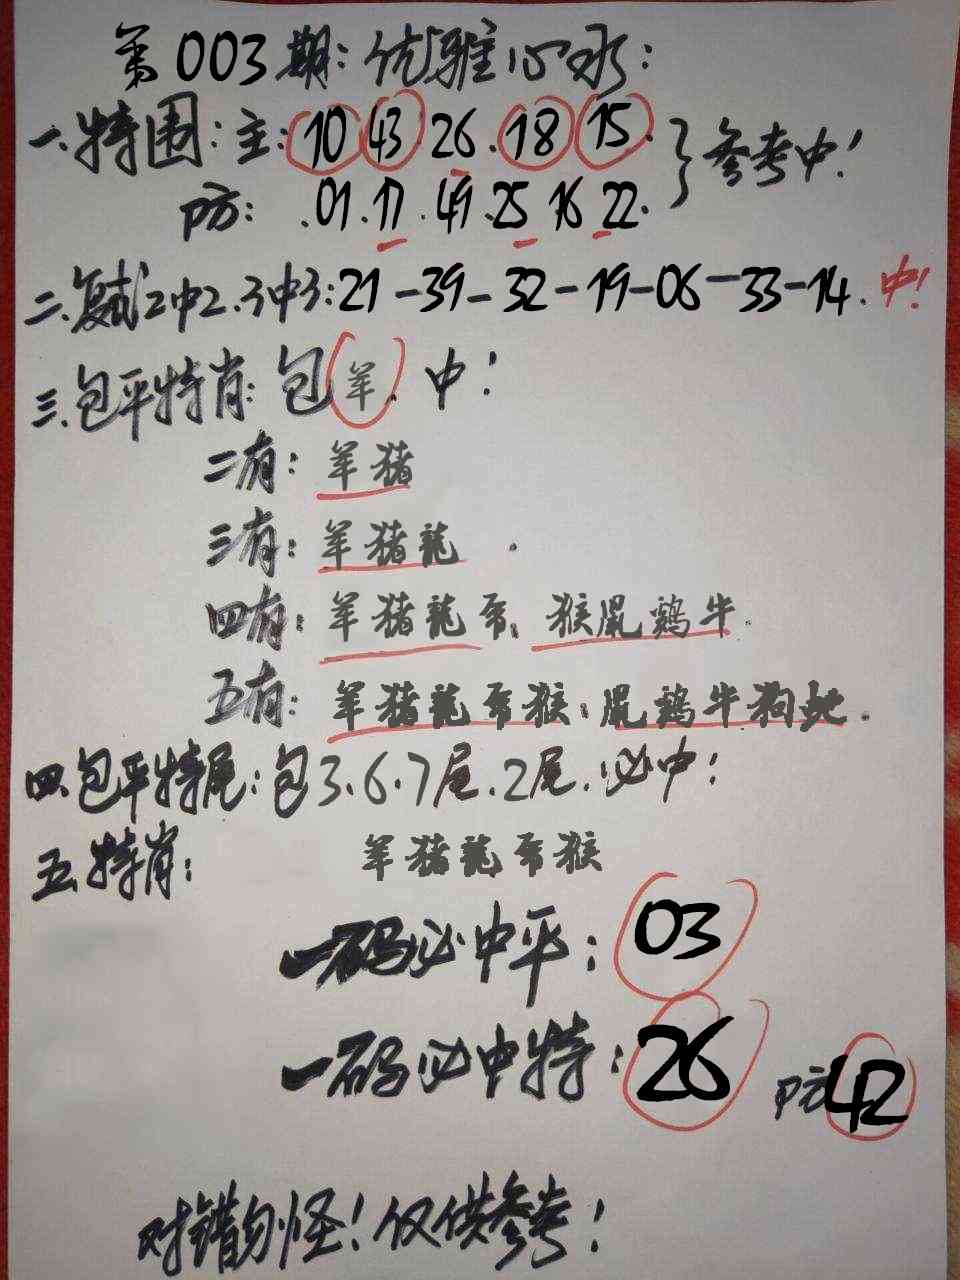 第003期:优雅心水:
一.特围:主:10 43.26.18 15.
防:.01.17.49.25 16 22.
参考中!
二.复式2中2.3中3:21-39-32-19-06-33-14.中!
三.包平特肖:包羊.中!
二有:羊猪
三有:羊猪龍.
四有:羊猪龍兔.猴鼠鷄牛.
五有:羊猪龍兔猴.鼠鷄牛狗蛇.
四.包平特尾:包3.6.7尾.2尾.必中!
五.特肖:羊猪龍兔猴
一码必中平:03
一码必中特:26 防42
对错勿怪!仅供参考!